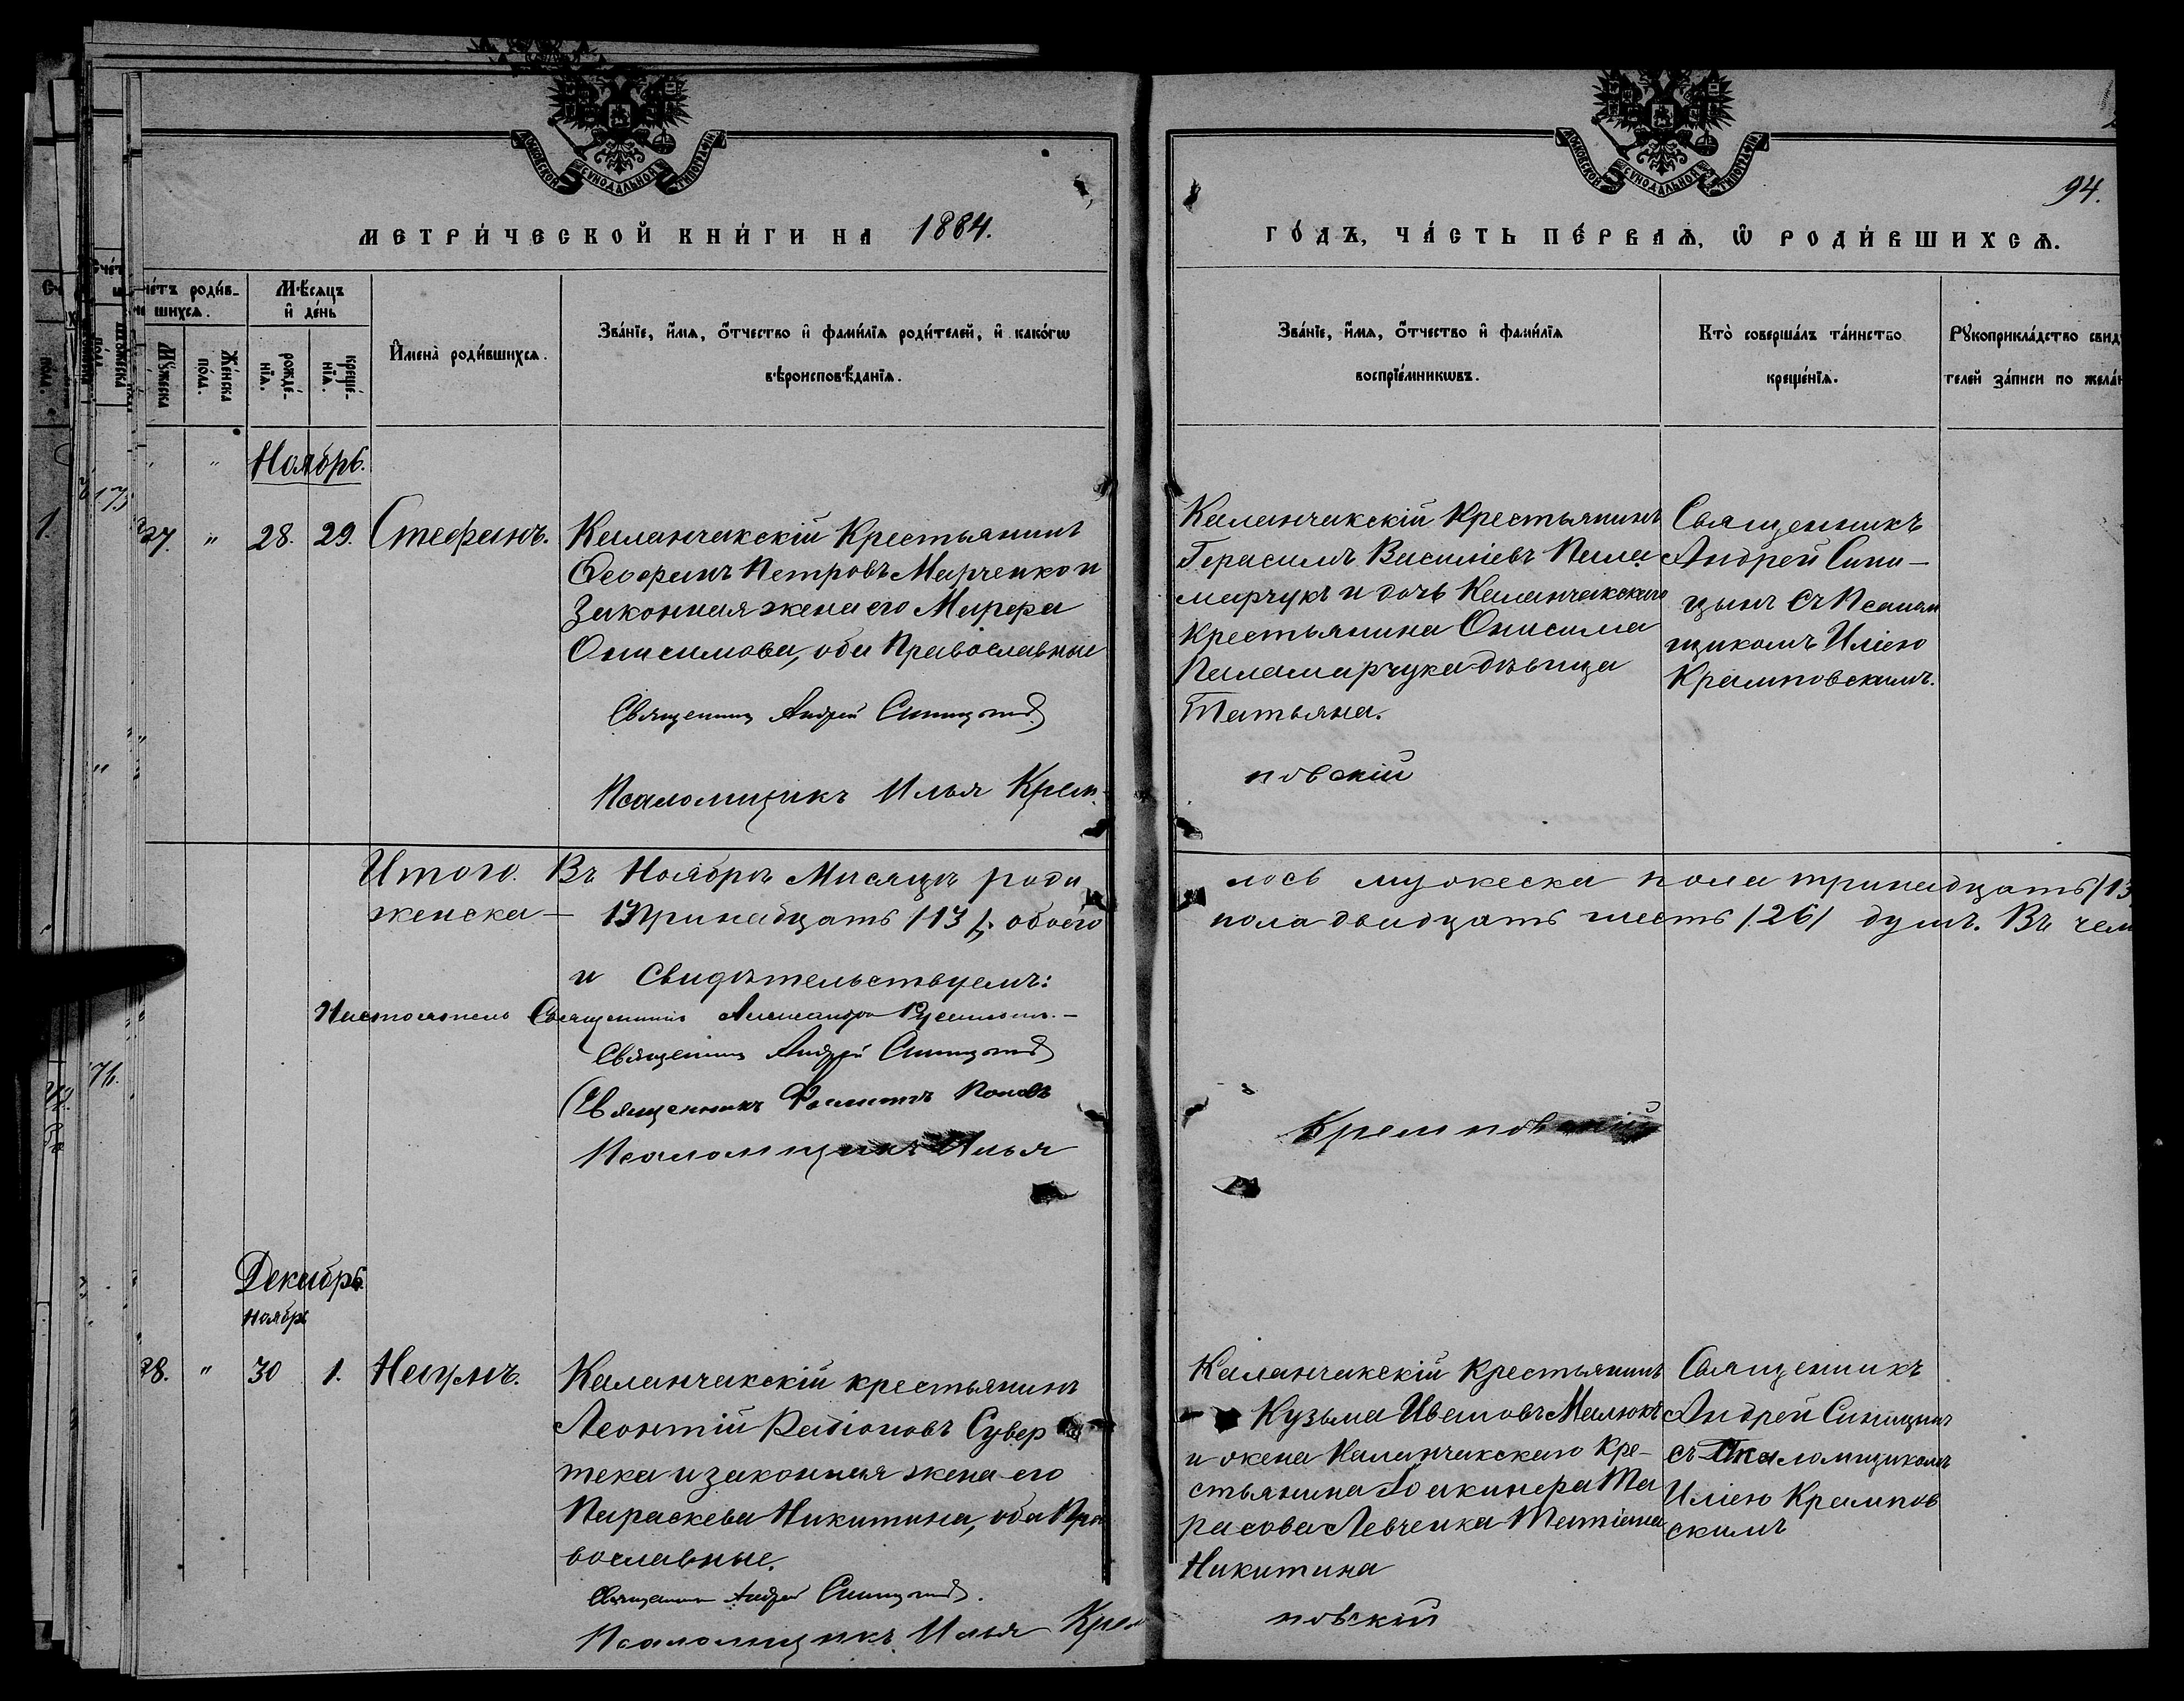 МОСКОВСКОЙ СѴНОДАЛЬНОЙ ТИПОГРАФІИ
МОСКОВСКОЙ СѴНОДАЛЬНОЙ ТИПОГРАФІИ
94.
МЕТРИ́ЧЕСКОЙ КНИ́ГИ НА 1884.
ГО́ДЪ, ЧА́СТЬ ПЕ́РВАѦ, Ѡ҆ РОДИ́ВШИХСѦ.
че́тъ роди́в-
шихсѧ.
Мѣ́сѧцъ
и҆ де́нь
Мꙋ́жеска
Же́нска
по́ла.
рожде́-
нїѧ.
креще́-
нїѧ.
И҆мена̀ роди́вшихсѧ.
Зва́нїе, и҆́мѧ, ѻ҆́тчество и҆ фами́лїѧ роди́телей, и҆ како́гѡ
вѣроисповѣ́данїѧ.
Зва́нїе, и҆́мѧ, ѻ҆́тчество и҆ фами́лїѧ
воспрїе́мникѡвъ.
Кто̀ соверша́лъ та́инство
креще́нїѧ.
Рꙋкоприкла́дство свид
телей за́писи по жела́н
Ноябрь.
27. " 28. 29. Стефанъ.
Каланчакскій Крестьянинъ
Ѳеофанъ Петровъ Марченко и
Законная жена его Марфа
Онисимова, оба Православные
Священникъ Андрей Синицынъ
Псаломщикъ Илья Крем-
Каланчакскій Крестьянинъ
Герасимъ Василіевъ Пала-
марчукъ и дочь Каланчакскаго
Крестьянина Онисима
Паламарчука дѣвица
Татьяна.
повскій
Священникъ
Андрей Сини-
цынъ съ Псалом
щикомъ Иліею
Крамповскимъ.
Итого. Въ Ноябрѣ Мѣсяцѣ роди
лось мужеска пола тринадцать /13
женска — 13 тринадцать /13/; обоего
пола двадцать шесть /26/ душъ. Въ чем
и свидѣтельствуемъ:
Настоятель Священникъ Александръ
Священникъ Андрей Синицынъ
Священникъ Поповъ
Псаломщикъ Илья
Кремповскій
Декабрь
ноябрь
28. " 30 1. Наумъ.
Каланчакскій крестьянинъ
Леонтій Радіоновъ Сувер
тека и законная жена его
Параскева Никитина, оба Пра
вославные.
Священникъ Андрей Синицынъ.
Псаломщикъ Илья Крем
Каланчакскій Крестьянинъ
Кузьма Ивановъ Малюкъ
и жена Каланчакскаго Кре-
стьянина Та
расова Левченка Татіана
Никитина
повскій
Священникъ
Андрей Синицынъ
съ Псаломщикомъ
Иліею Крампов
скимъ